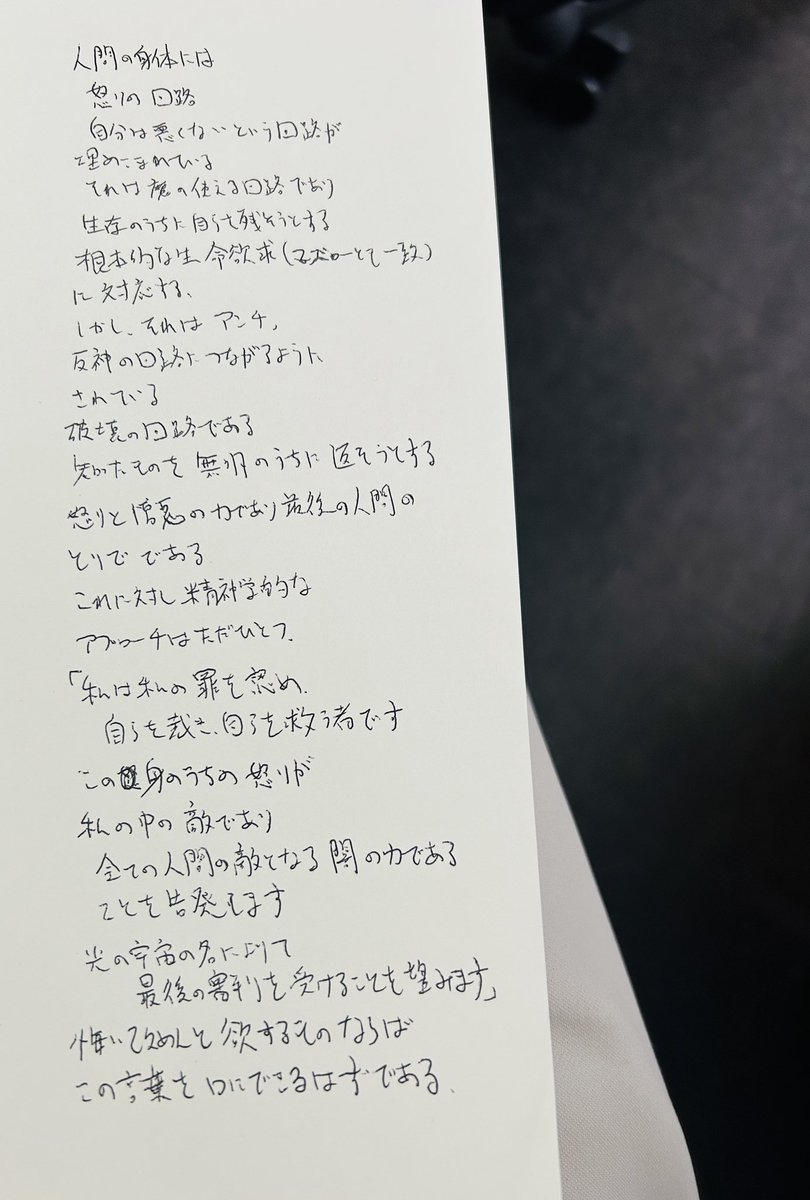 人間の身体には
怒りの回路
自分は悪くないという回路が
埋めこまれている
それは魔の使える回路であり
生存のうちに自らを残そうとする
根本的な生命欲求(マズローとて一致)
に対応する、
しかし、それは アンチ,
反神の回路につながるように
されている
破壊の回路である
たものを 無明のうちに 返そうとする
怒りと憎悪の力であり最後の人間の
とりで である
これに対し精神学的な
アプローチはただひとつ、
「私は私の罪を認め、
自らを裁き、自らを救う者です
この身のうちの怒りが
私の中の敵であり
全ての人間の敵となる闇の力である
ことを告発します
光の宇宙の名によりて
最後の審判を受けることを望みます」
悔い改めんと欲するものならば
この言葉を口にできるはずである、